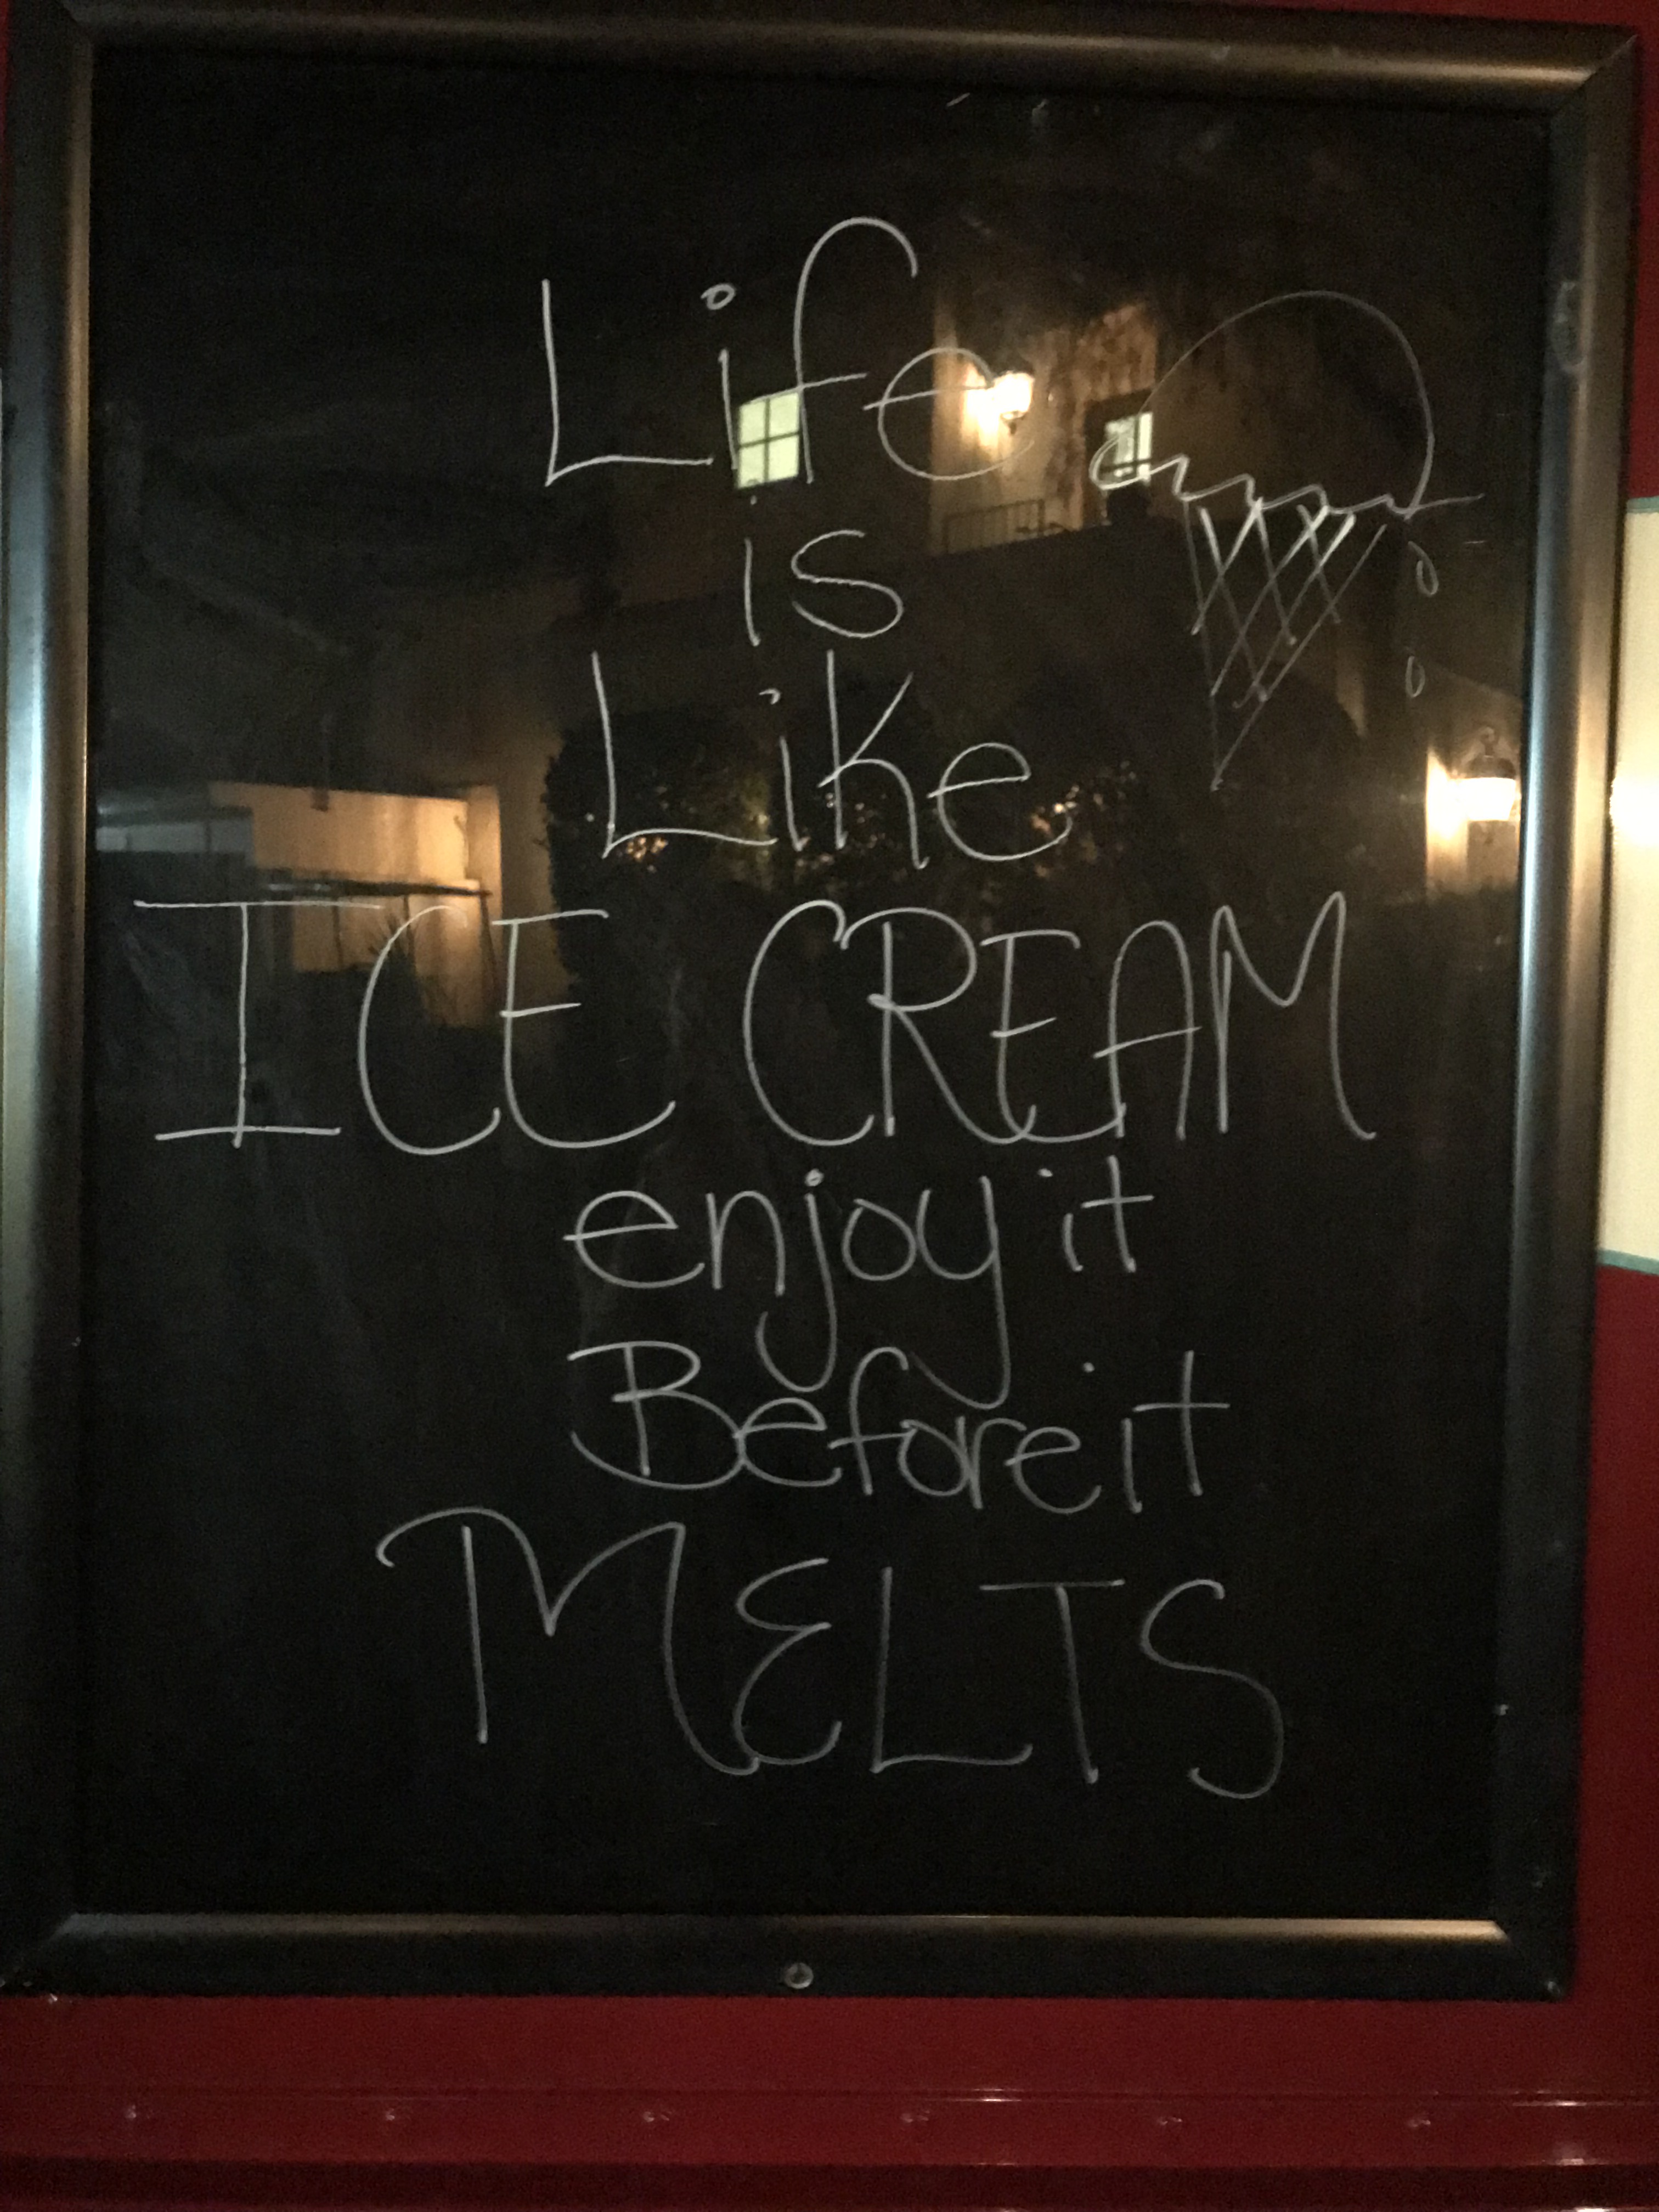 Life
is
Like
ICE CREAM
enjoy it
Before it
MELTS